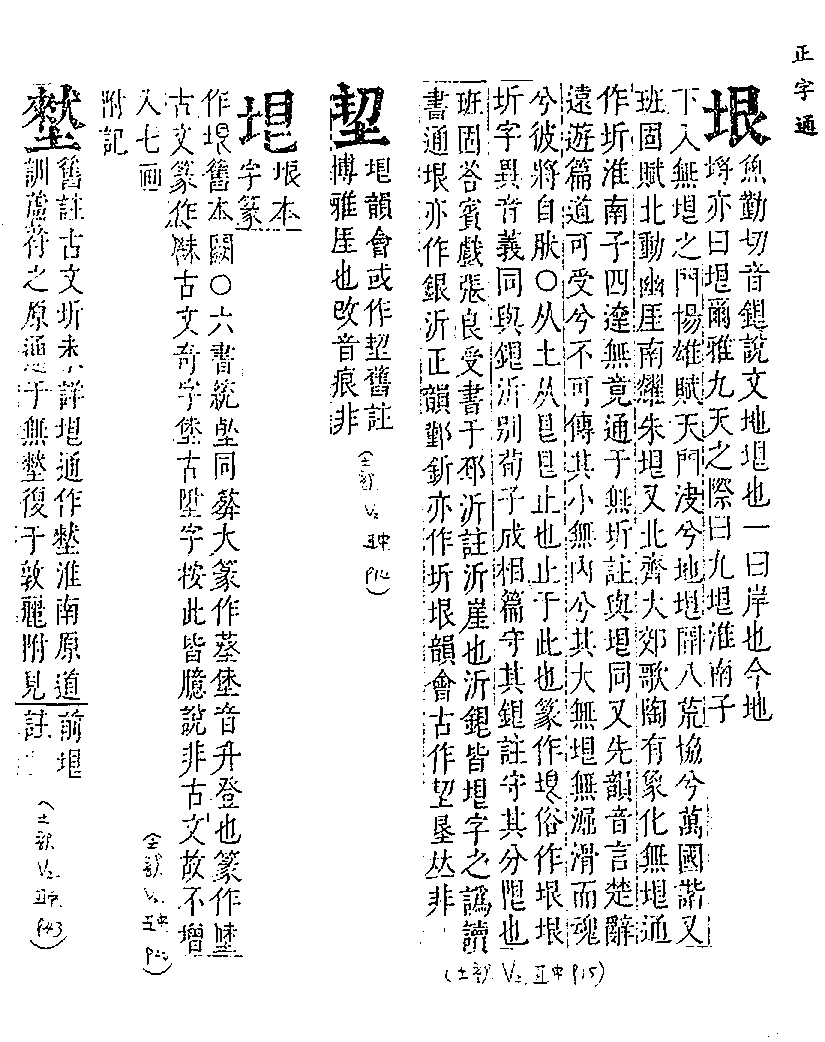 正字通
垠
魚勤切音銀說文地垠也一曰岸也今地
塝亦曰垠爾雅九天之際曰九垠淮南子
下入無垠之門揚雄賦天門決兮地垠開八荒協兮萬國諧又
班固賦北動幽厓南耀朱垠又北齊大郊歌陶有象化無垠通
作圻淮南子四達無竟通于無圻註與垠同又先韻音言楚辭
遠遊篇道可受兮不可傳其小無內兮其大無垠無滒滑而魂
兮彼將自肰○从土从皀皀止也止于此也篆作垠俗作垠垠
圻字異音義同與鋃沂別荀子成相篇守其銀註守其分限也
班固答賓戲張良受書于邳沂註沂崖也沂銀皆垠字之譌讀
書通垠亦作銀沂正韻鄞釿亦作圻垠韻會古作垼垦𠀤非
(土部 V2 丑中 P15)
垠韻會或作舊註
博雅厓也改音痕非
(土部 V2 丑中 P12)
垠本
字篆
作垠舊本闕○六書統
同大篆作音升登也篆作
古文篆作古文奇字古陞字按此皆臆說非古文故不增
入七畫
附記
舊註古文圻未詳垠通作淮南原道前垠
訓蘆苻之原通于無復于敦龎附見註
(土部 V2 丑中 P43)